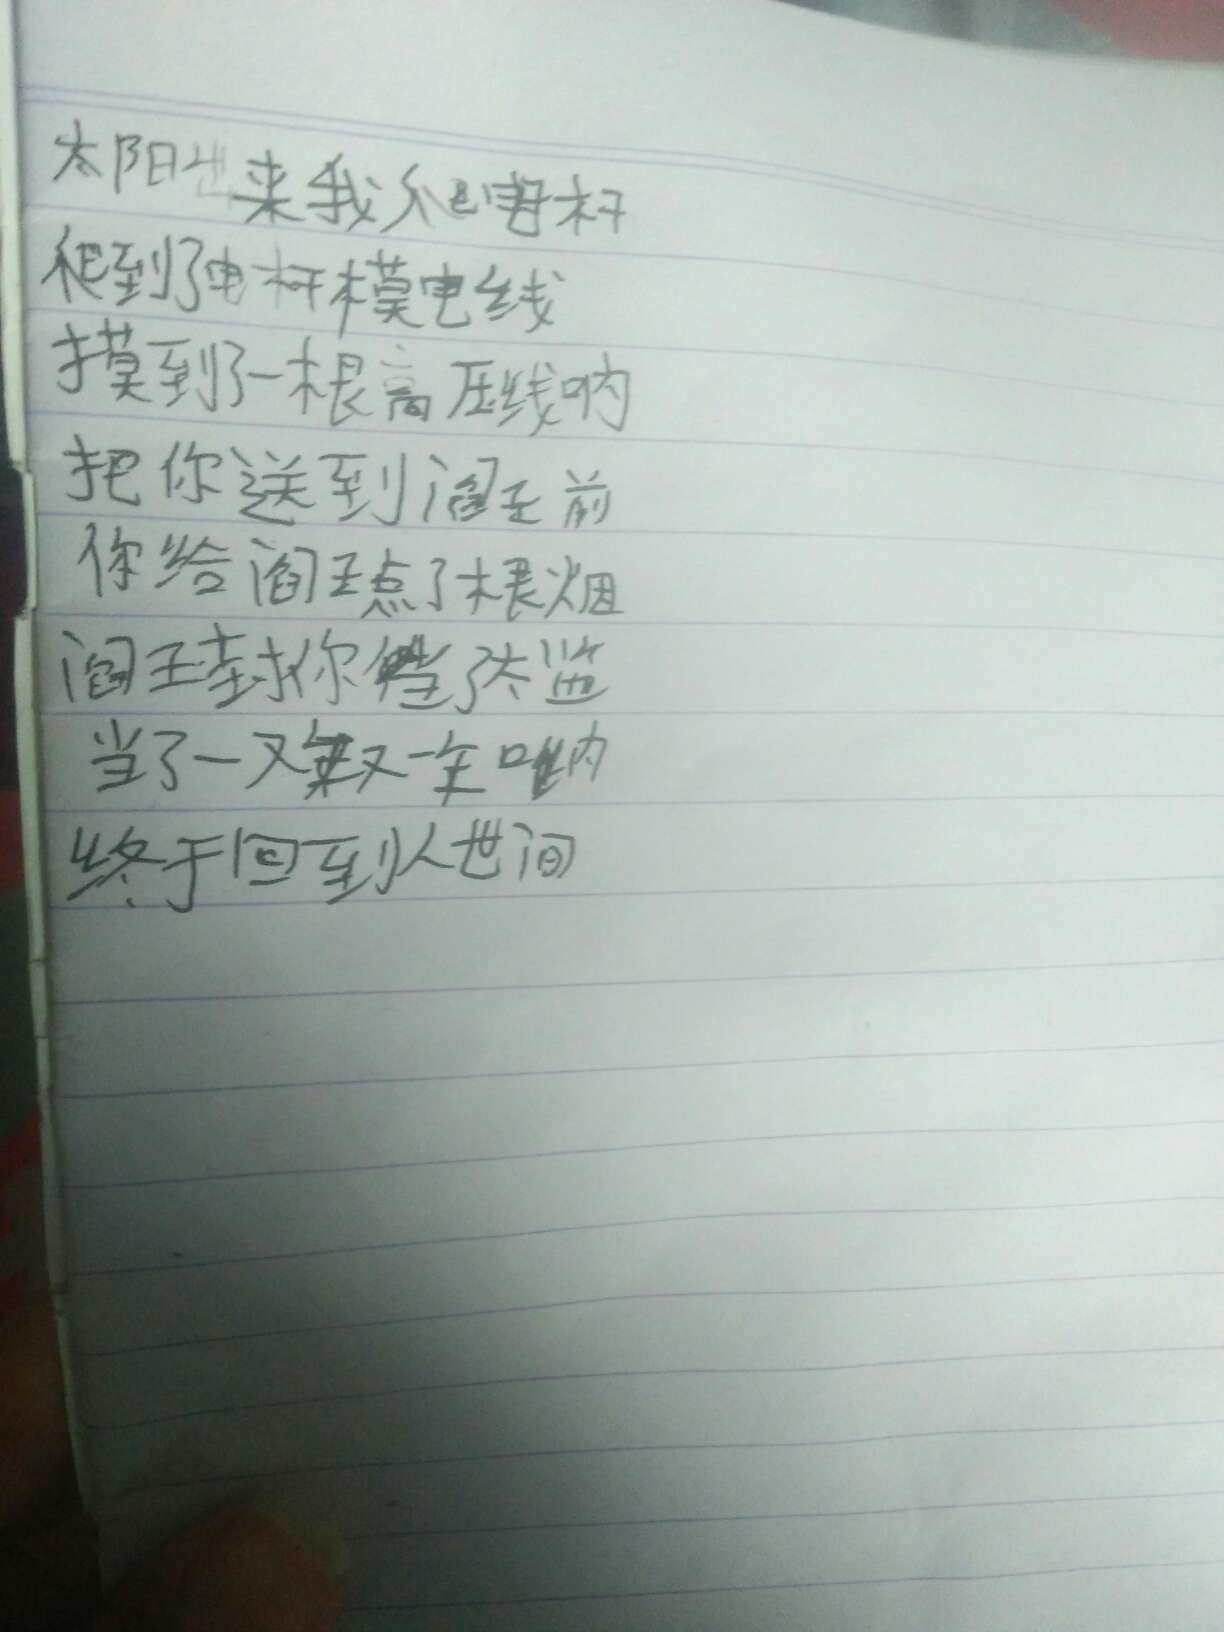 太阳出来我爬电杆
爬到了电杆模电线
摸到了一根高压线呐
把你送到阎王前
你给阎王点了根烟
阎王封你当了太监
当了一又年又一年呐
终于回到人世间